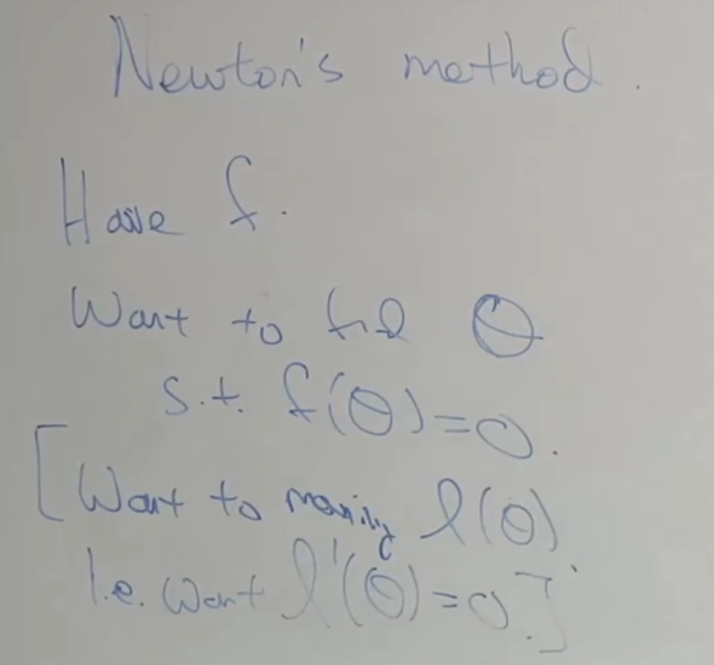 Newton's method.
Have f.
Want to find θ
s.t. f(θ)=0.
[Want to maximize l(θ)
I.e. want l'(θ)=0.]